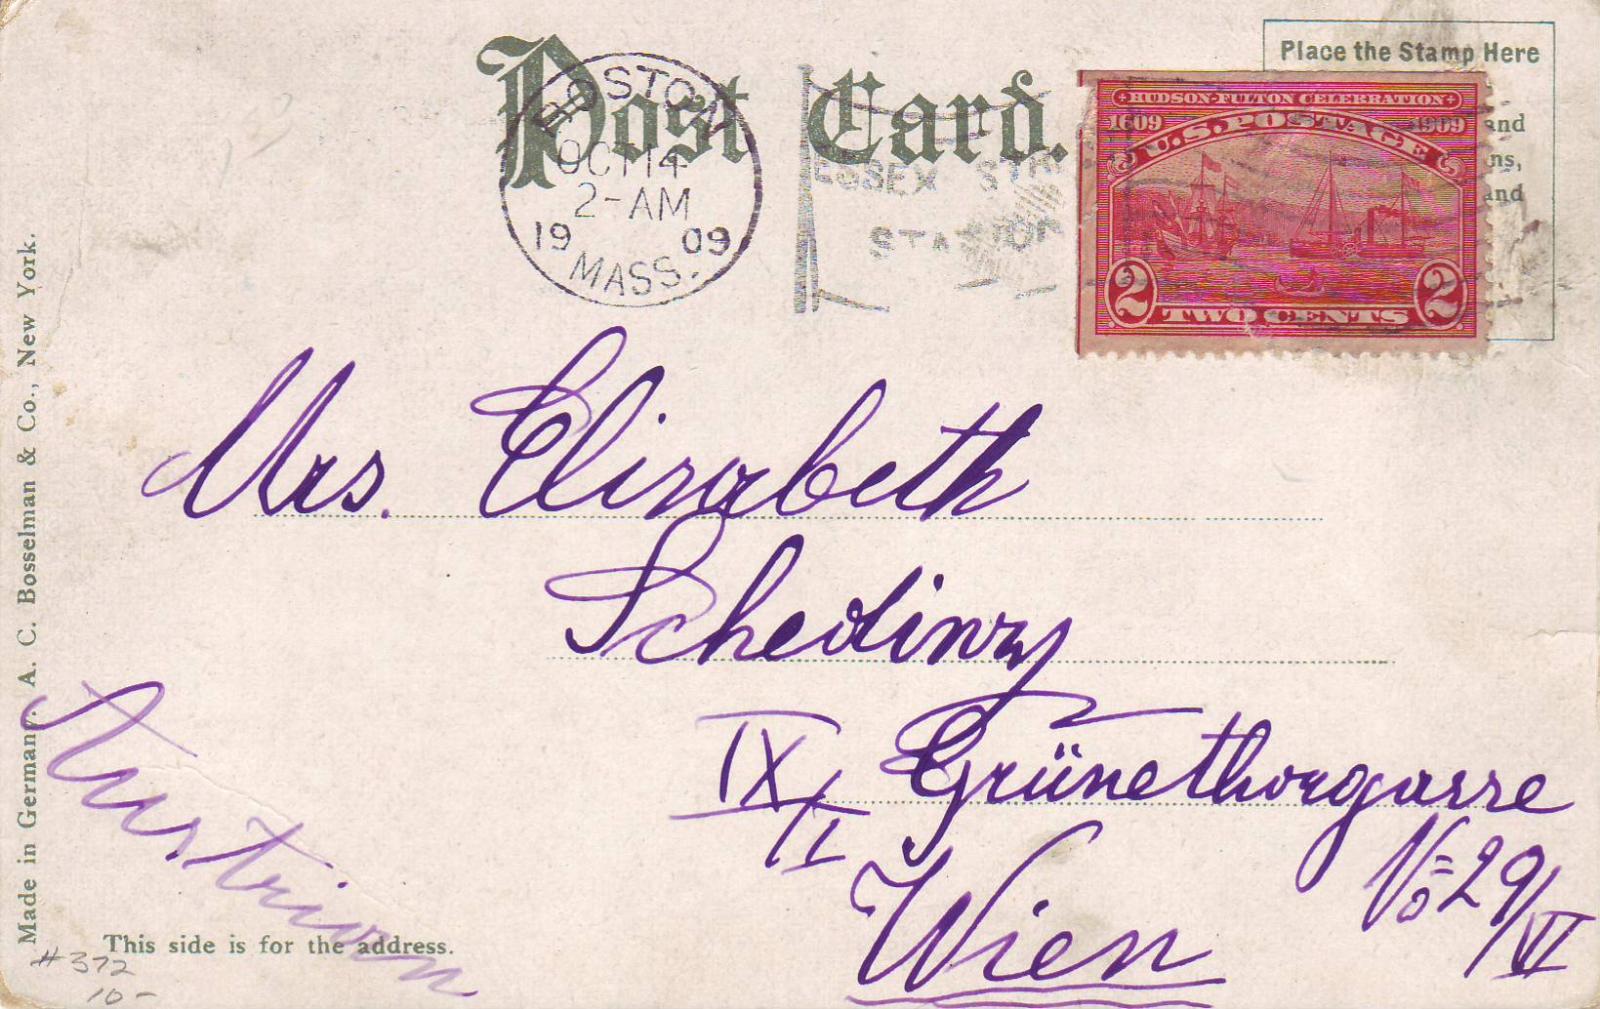 Post Card.
Place the Stamp Here
and
ns,
and
BOSTON
OCT 14
2-AM
19 09
MASS.
ESSEX ST.
STATION
HUDSON-FULTON CELEBRATION
1609 1909
U.S. POSTAGE
2 2
TWO CENTS
Mrs. Elizabeth
IX/I Grünethorgasse
No 29/VI
Wien
Austrian
Made in Germany. A. C. Bosselman & Co., New York.
This side is for the address.
#372
10-